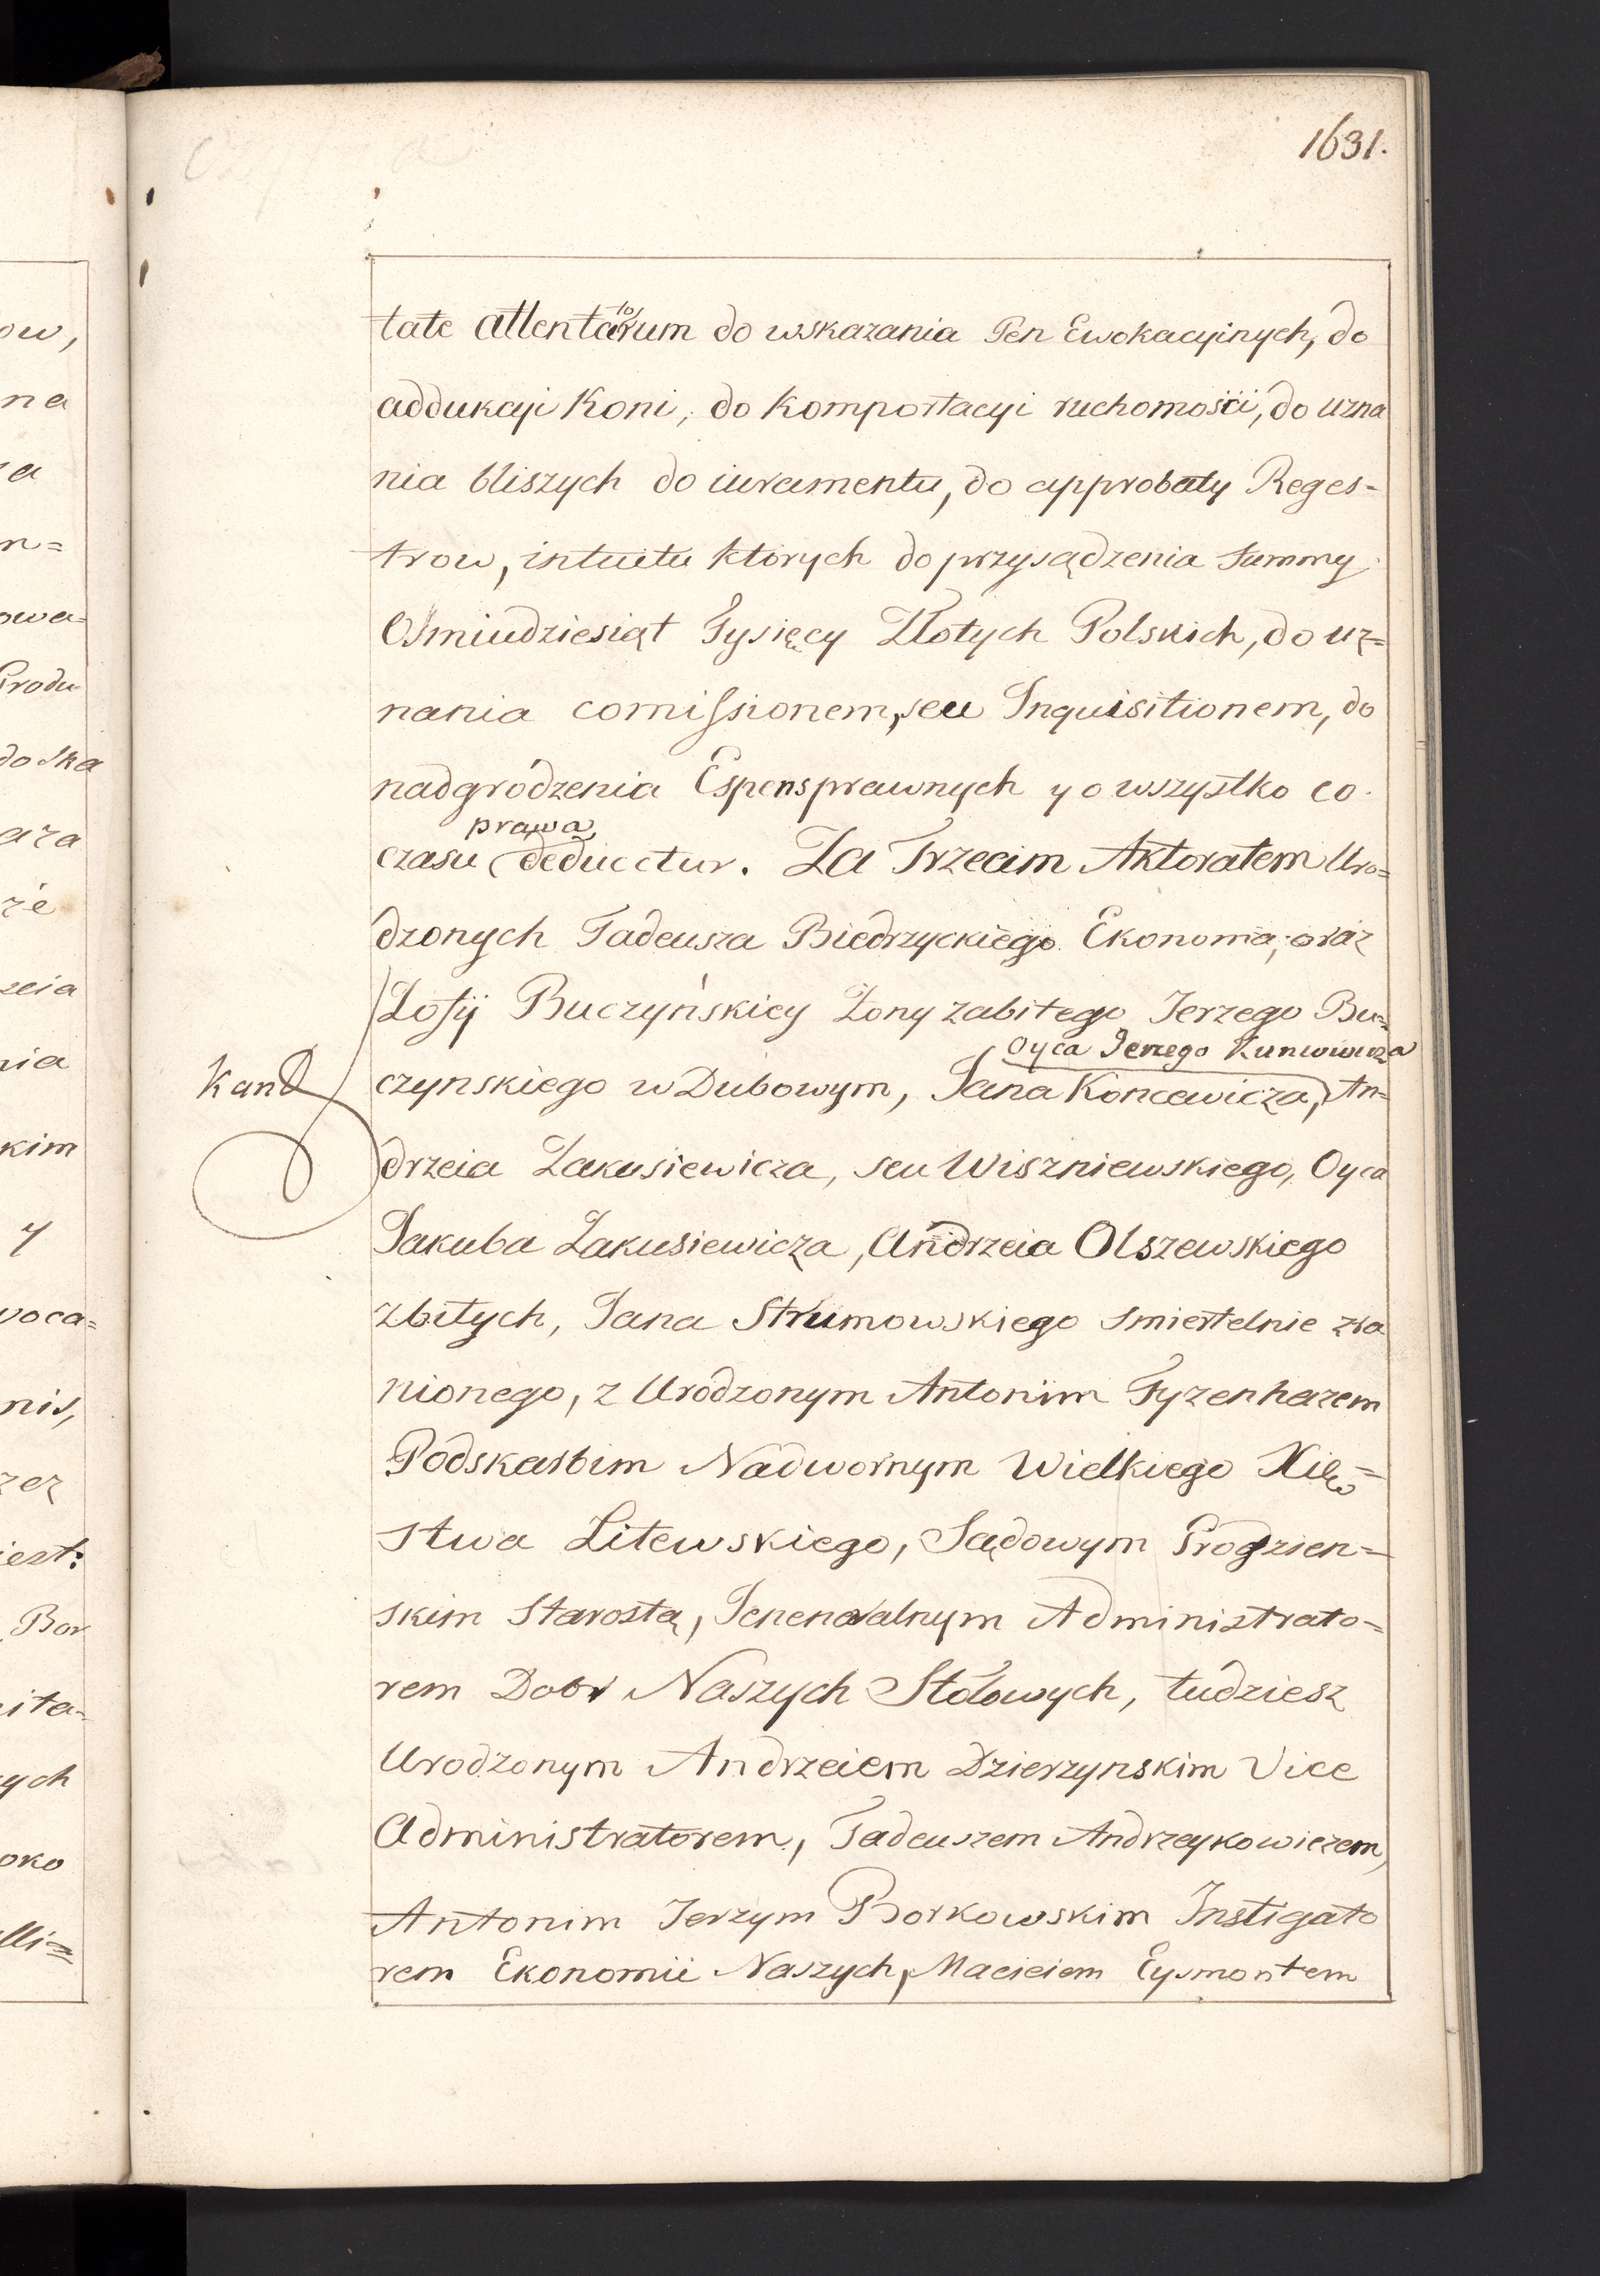 1631.
tate attentatorum do wskazania Pen Ewokacyinych, do
addukcyi Koni, do Komportacyi ruchomości, do uzna
nia bliszych do iuramentu, do approbaty Reges-
trow, intuitu ktorych do przysądzenia Summy
Osmiudziesiąt Tysięcy Złotych Polskich, do uz=
nania comissionem, seu Inquisitionem, do
nadgrodzenia Espens prawnych y o wszystko co
prawa
czasu deducetur. Za Trzecim Aktoratem Uro=
dzonych Tadeusza Biedrzyckiego Ekonoma, oraz
Zofij Buczyńskiey Zony zabitego Jerzego Bu=
Oyca Jerzego Kuncewicza
Kand
czynskiego w Dubowym, Jana Koncewicza, An=
drzeia Zakusiewicza, seu Wiszniewskiego, Oyca
Jakuba Zakusiewicza, Andrzeia Olszewskiego
zbitych, Jana Strumowskiego smiertelnie zra
nionego, z Urodzonym Antonim Tyzenhazem
Podskarbim Nadwornym Wielkiego Xię=
stwa Litewskiego, Sądowym Grodzien=
skim Starostą, Jeneralnym Administrato=
rem Dobr Naszych Stołowych, tudziesz
Urodzonym Andrzeiem Dzierzynskim Vice
Administratorem, Tadeuszem Andrzeykowiczem,
Antonim Jerzym Borkowskim Instigato
rem Ekonomii Naszych, Macieiem Eysmontem